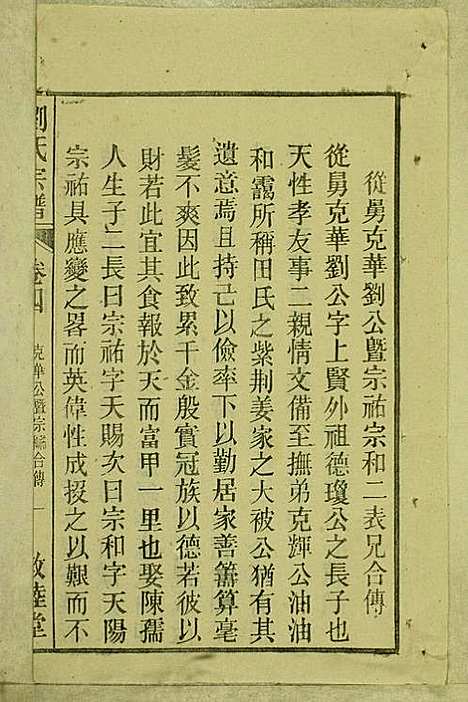 從舅克華劉公暨宗祐宗和二表兄合傳
從舅克華劉公字上賢外祖德瓊公之長子也
天性孝友事二親情文備至撫弟克輝公油油
和靄所稱田氏之紫荆姜家之大被公猶有其
遺意焉且持己以儉率下以勤居家善籌算毫
髮不爽因此致累千金殷實冠族以德若彼以
財若此宜其食報於天而富甲一里也娶陳孺
人生子二長曰宗祐字天賜次曰宗和字天陽
宗祐具應變之畧而英偉性成投之以艱而不
劉氏宗譜
卷四
克華公暨宗祐合傳
一
敦睦堂